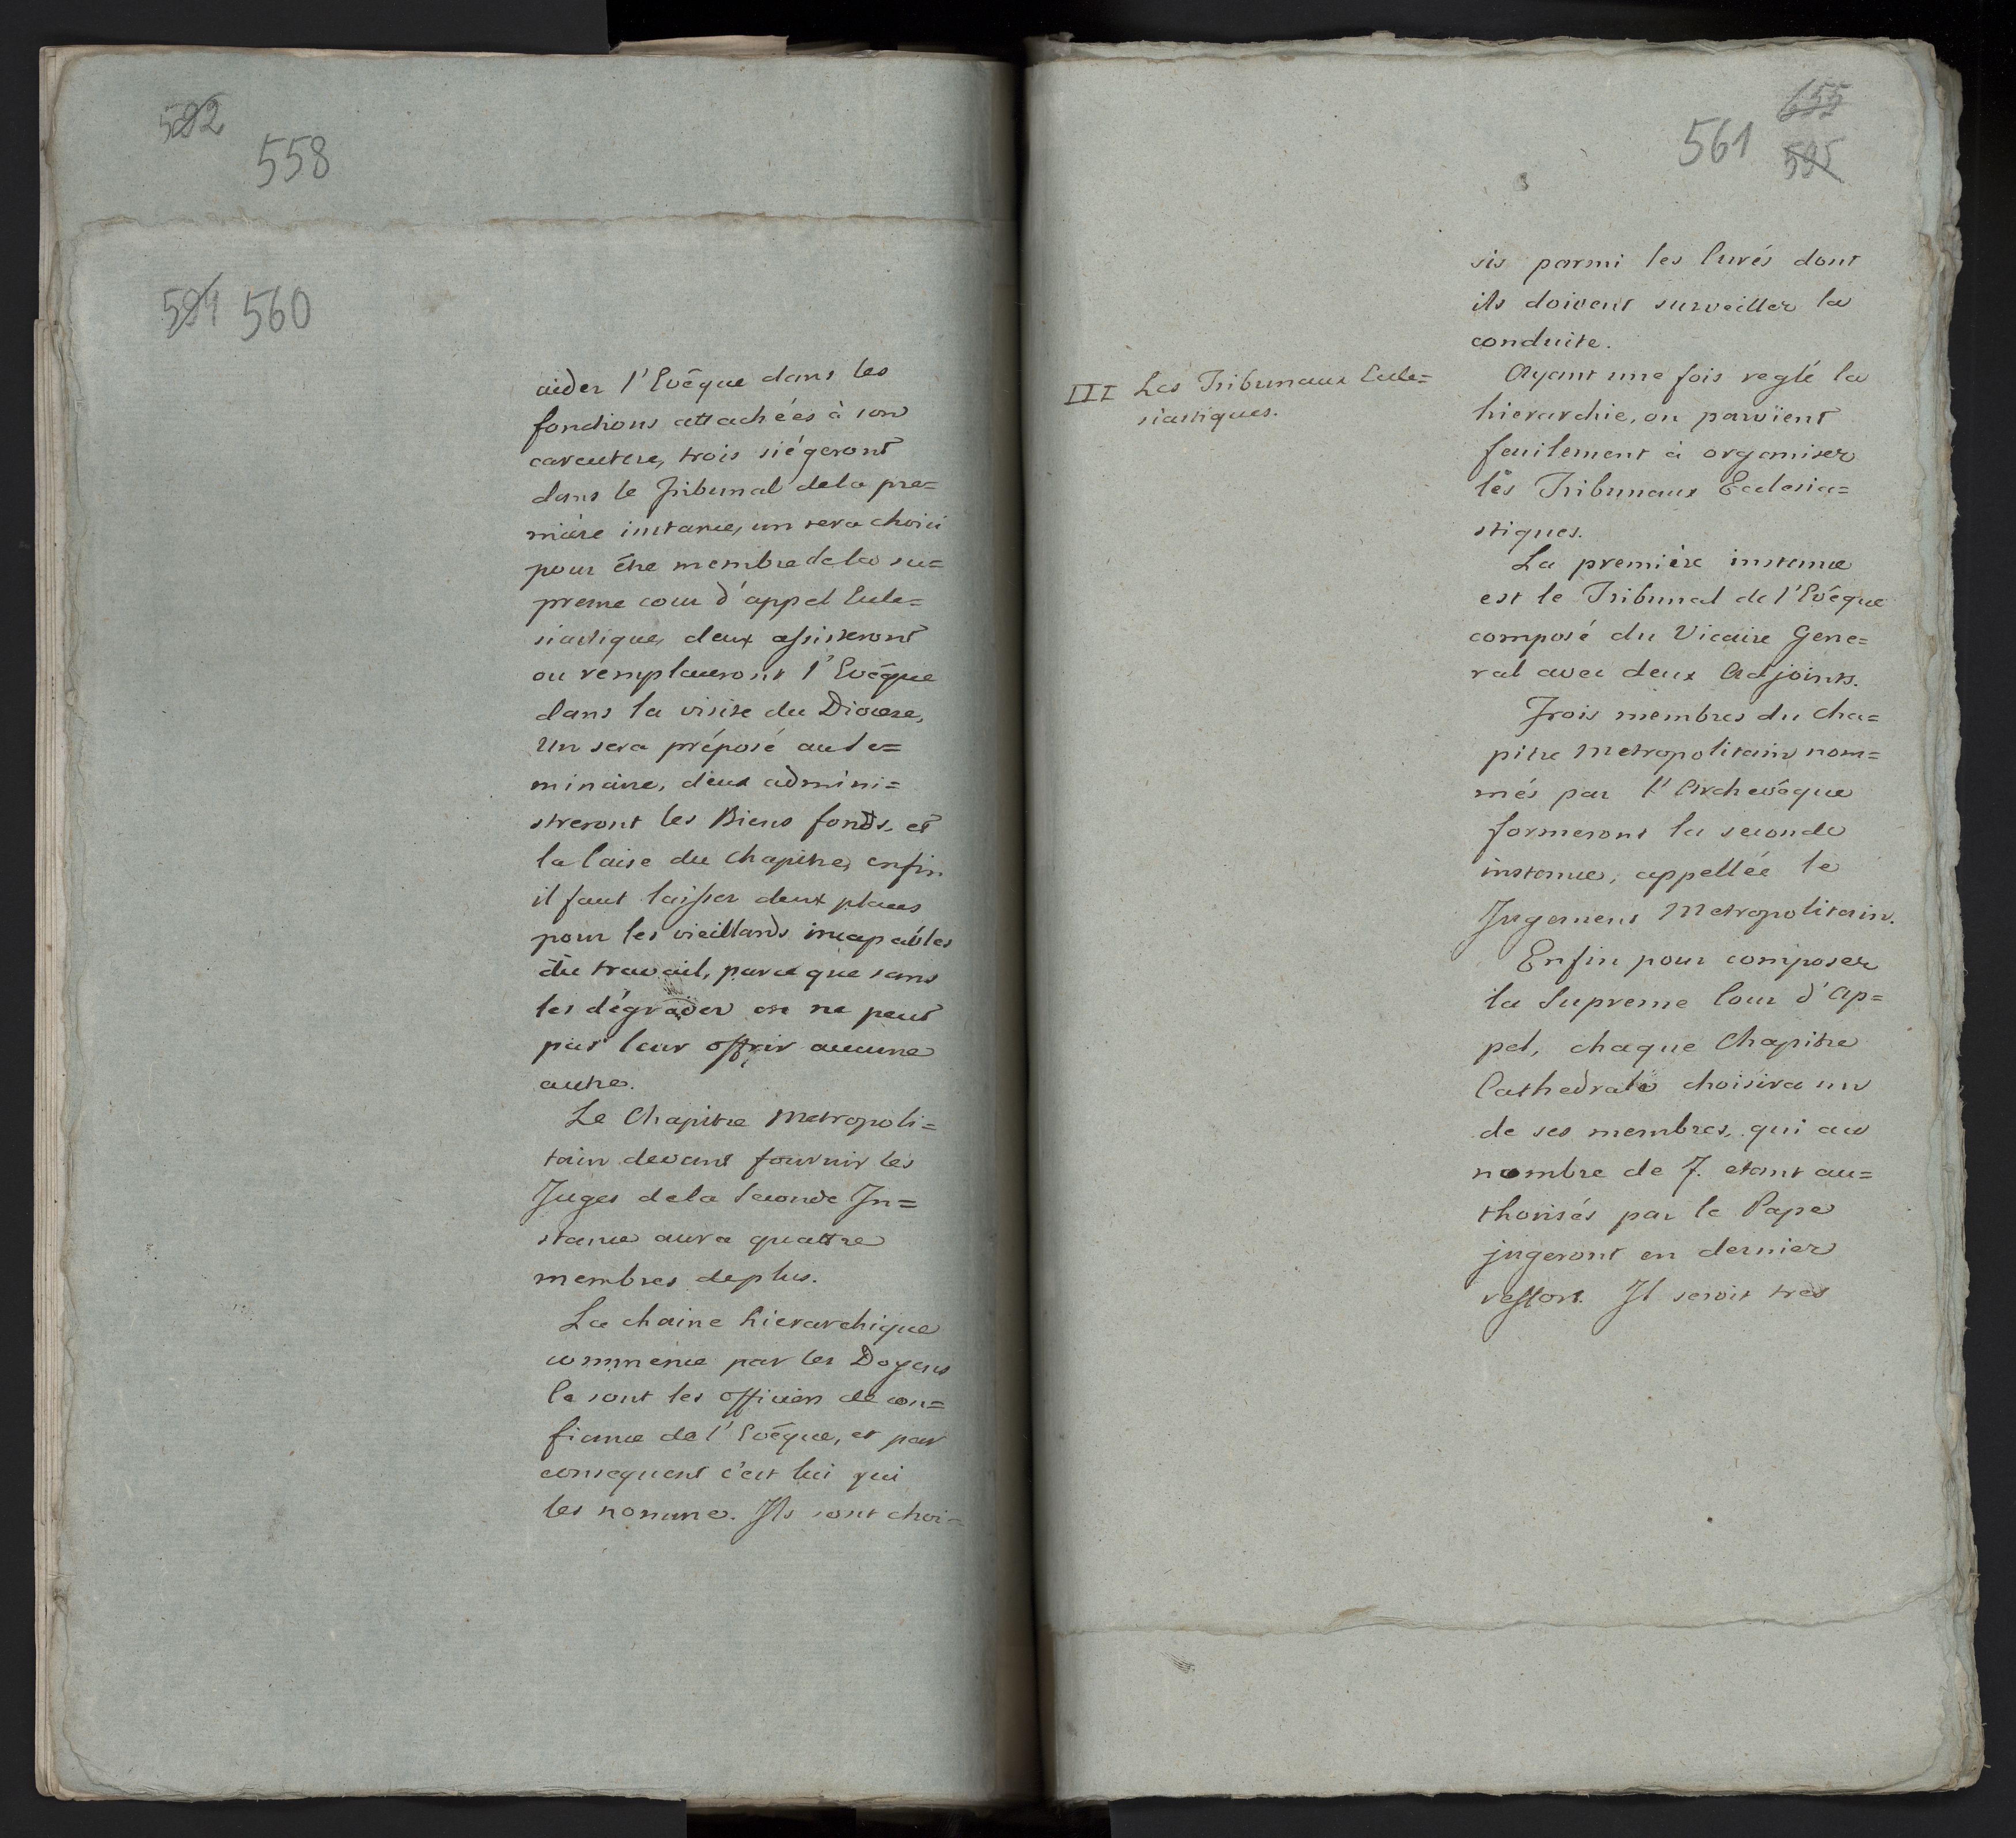 592
558
594 560
aider l'Evêque dans les
fonctions attachées à son
caractere, trois siégeront
dans le Tribunal de la pre=
mière instance, un sera choisi
pour être membre de la su=
preme cour d'appel Eccle=
siastique, deux assisteront
ou remplaceront l'Evêque
dans la visite du Diocese,
Un sera préposé au Se=
minaire, deux admini=
streront les Biens fonds, et
la Caise du Chapitre, enfin
il faut laisser deux places
pour les vieillards incapables
du travail, parce que sans
les dégrader on ne peut
pas leur offrir aucune
autre.
Le Chapitre Metropoli=
tain devant fournir les
Juges de la Seconde In=
stance aura quattre
membres de plus.
La chaine hierarchique
commence par les Doyens
Ce sont les officiers de con=
fiance de l'Evêque, et par
consequent c'est lui qui
les nomme. Ils sont choi=
655
561 595
sis parmi les Curés dont
ils doivent surveiller la
conduite.
III Les Tribunaux Eccle=
siastiques.
Ayant une fois reglé la
hierarchie, on parvient
facilement à organiser
les Tribunaux Ecclesia=
stiques.
La première instance
est le Tribunal de l'Evêque
composé du Vicaire Gene=
ral avec deux Adjoints.
Trois membres du cha=
pitre Metropolitain nom=
més par l'Archevêque
formeront la seconde
instance, appellée le
Jugement Metropolitain.
Enfin pour composer
la Supreme Cour d'Ap=
pel, chaque Chapitre
Cathedrale choisira un
de ses membres, qui au
nombre de 7. etant au=
thorisés par le Pape
jugeront en dernier
ressort. Il seroit tres